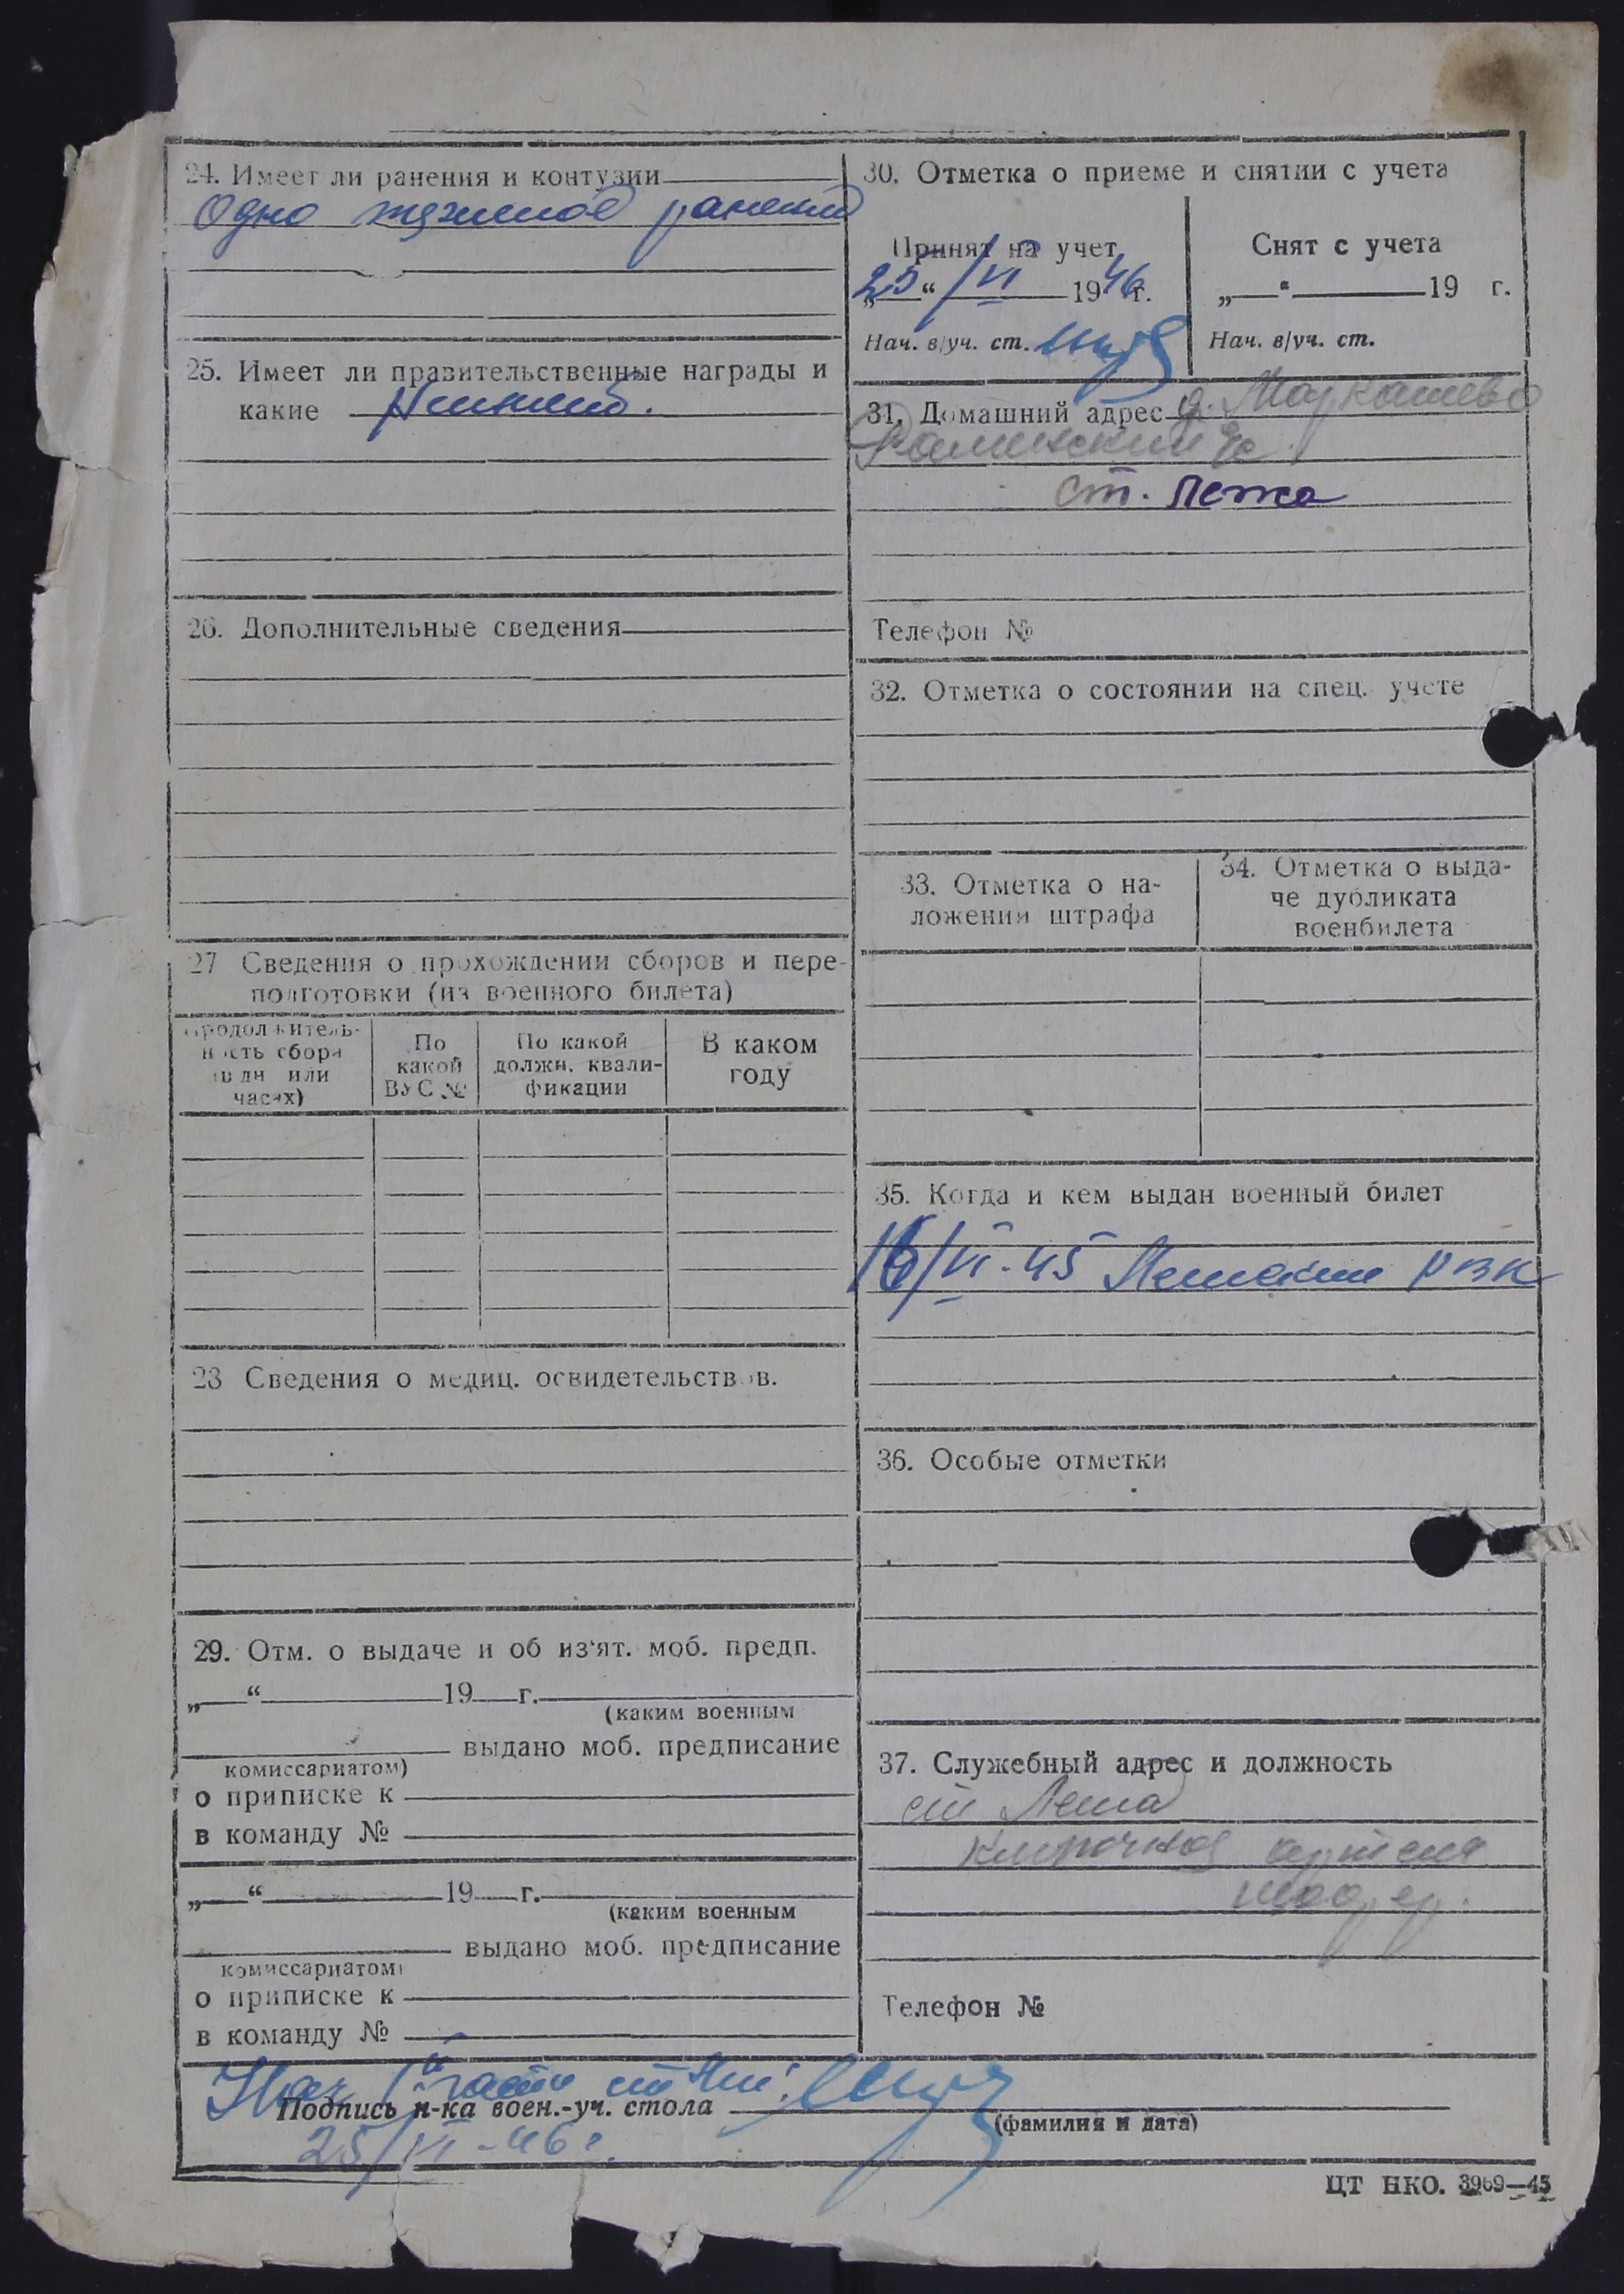 24. Имеет ли ранения и контузии
Одно тяжелое ранение
25. Имеет ли правительственные награды и
какие Неимеет.
26. Дополнительные сведения
27 Сведения о прохождении сборов и пере-
подготовки (из военного билета)
Продолжитель-
ность сбора
(в дн или
часах)
По
какой
ВУС №
По какой
должн. квали-
фикации
В каком
году
28 Сведения о медиц. освидетельствов.
29. Отм. о выдаче и об из'ят. моб. предп.
„ “ 19 г.
(каким военным
выдано моб. предписание
комиссариатом)
о приписке к
в команду №
„ “ 19 г.
(каким военным
выдано моб. предписание
комиссариатом)
о приписке к
в команду №
30. Отметка о приеме и снятии с учета
Принят на учет
„25“ /VI 1946 г.
Нач. в/уч. ст.
Снят с учета
„ “ 19 г.
Нач. в/уч. ст.
31. Домашний адрес д. Маркашево
ст. Лежа
Телефон №
32. Отметка о состоянии на спец. учете
33. Отметка о на-
ложении штрафа
34. Отметка о выда-
че дубликата
военбилета
35. Когда и кем выдан военный билет
16/VI-45 РВК
36. Особые отметки
37. Служебный адрес и должность
ст Лежа
артель
Телефон №
Нач части
Подпись н-ка воен.-уч. стола
(фамилия и дата)
25/VI-46г.
ЦТ НКО. 3969—45